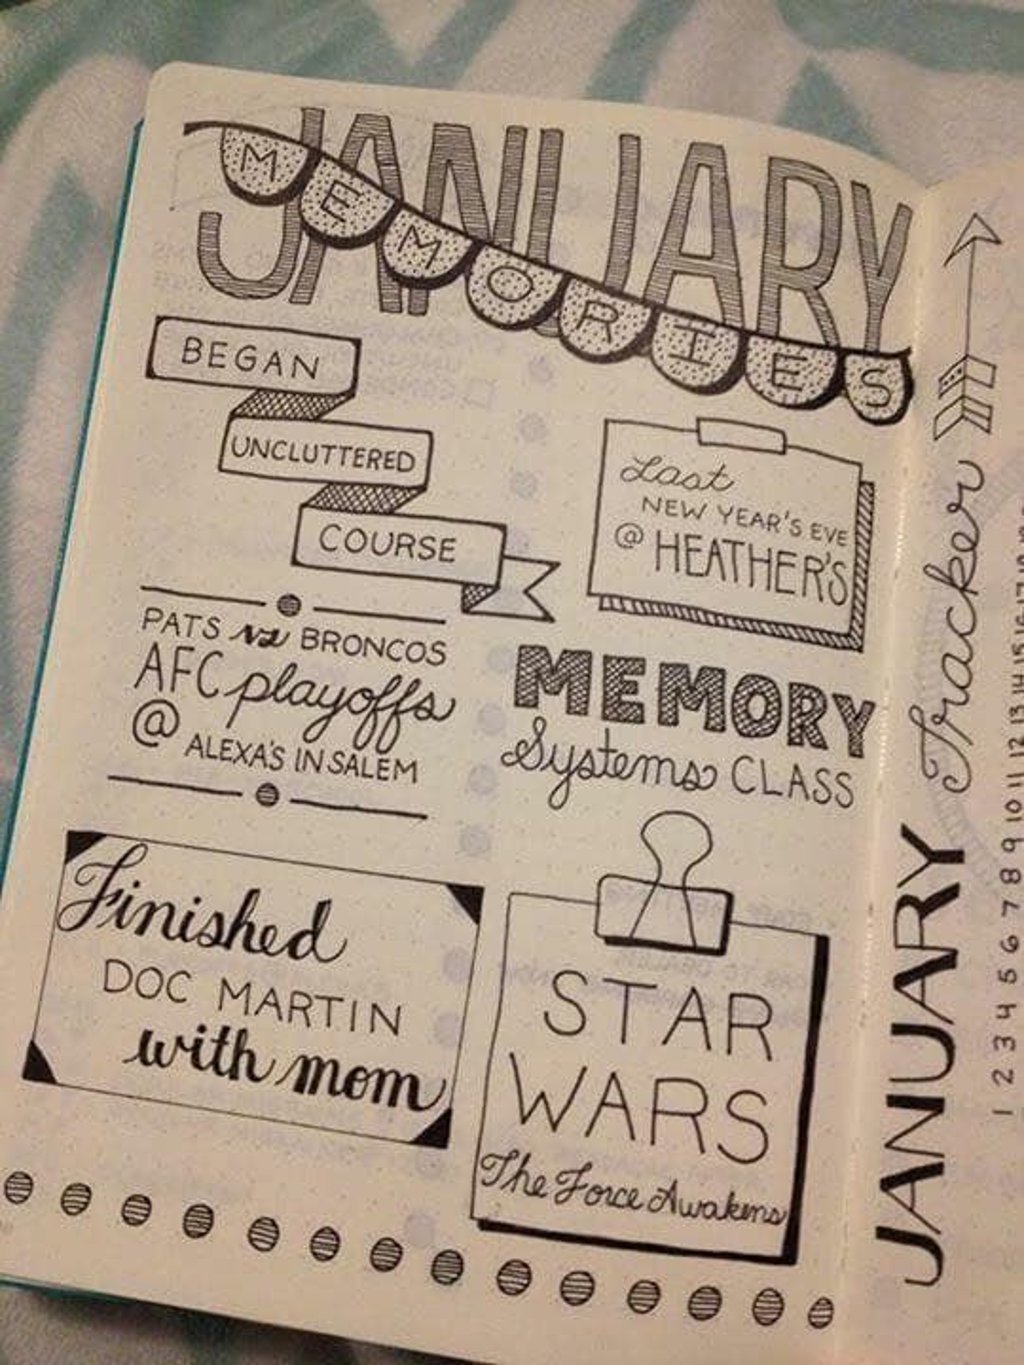 JANUARY
MEMORIES
BEGAN
UNCLUTTERED
COURSE
Last
NEW YEAR'S EVE
@ HEATHER'S
PATS vs BRONCOS
AFC playoffs
@ ALEXA'S IN SALEM
MEMORY
Systems CLASS
Finished
DOC MARTIN
with mom
STAR
WARS
The Force Awakens
JANUARY Tracker
1 2 3 4 5 6 7 8 9 10 11 12 13 14 15 16 17 18 19